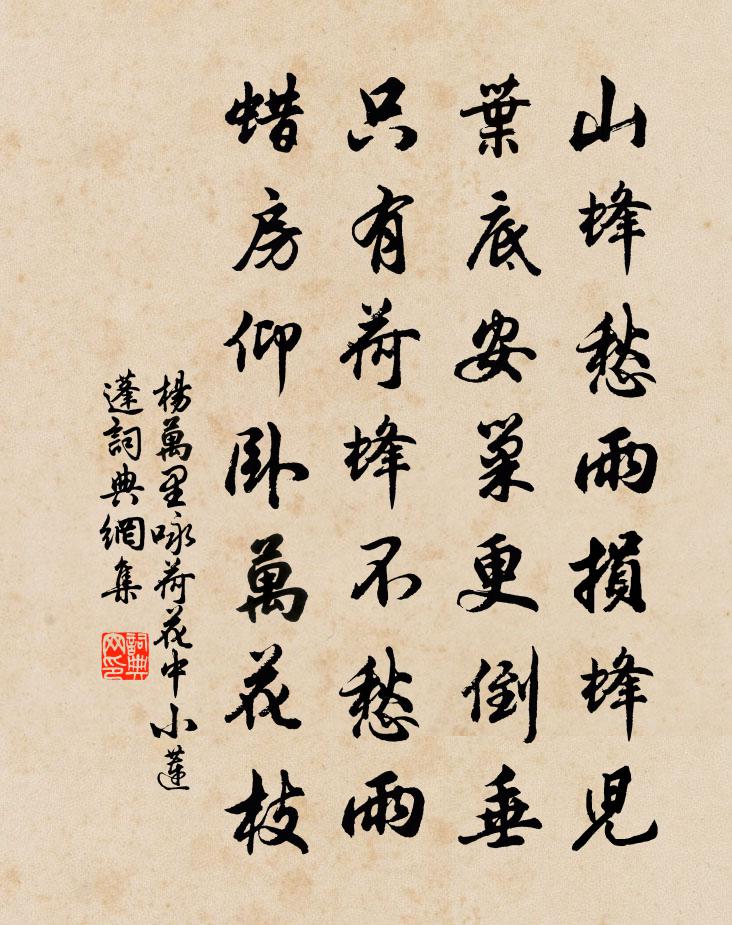 山蜂愁雨損蜂兒
葉底安巢更倒垂
只有荷蜂不愁雨
蜡房仰卧萬花枝
楊萬里咏荷花中小蓮
蓬詞典網集
詞典
网印